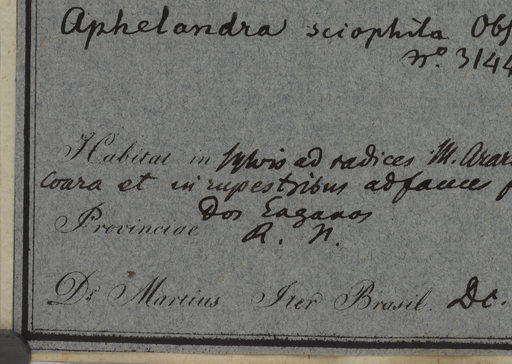 Aphelandra sciophila Obs
N.º 3144
Habitat in sylvis ad radices M. Arar
Coara et in rupestribus ad fauces f
dos Enganos
Provinciae R. N.
Dr. Martius Iter Brasil. Dc.